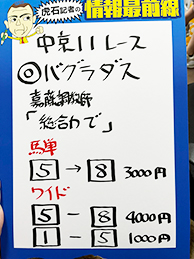 虎石記者の
情報最前線
中京11レース
◎バグラダス
嘉藤調教師
「総合力で」
馬単
5 → 8 3000円
ワイド
5 - 8 4000円
1 - 5 1000円